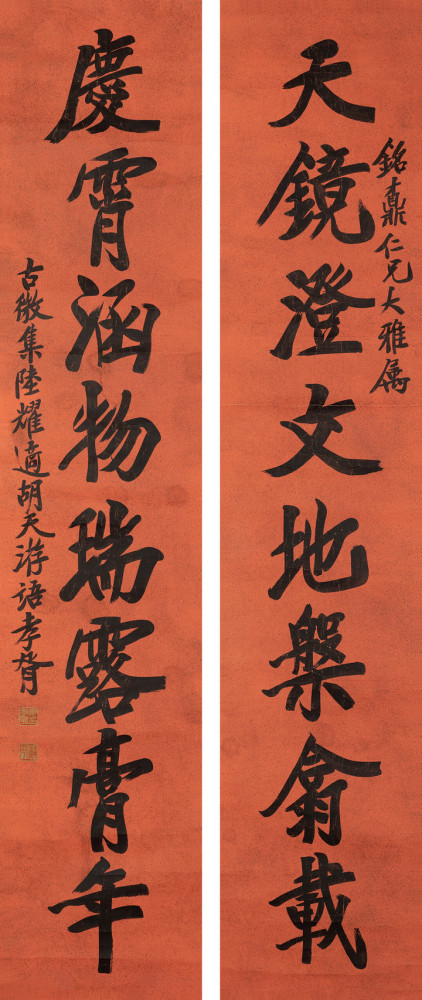 銘鼎仁兄大雅属
天鏡澄文地槃翕載
慶霄涵物瑞露膏年
古微集陸耀遹胡天游語孝胥